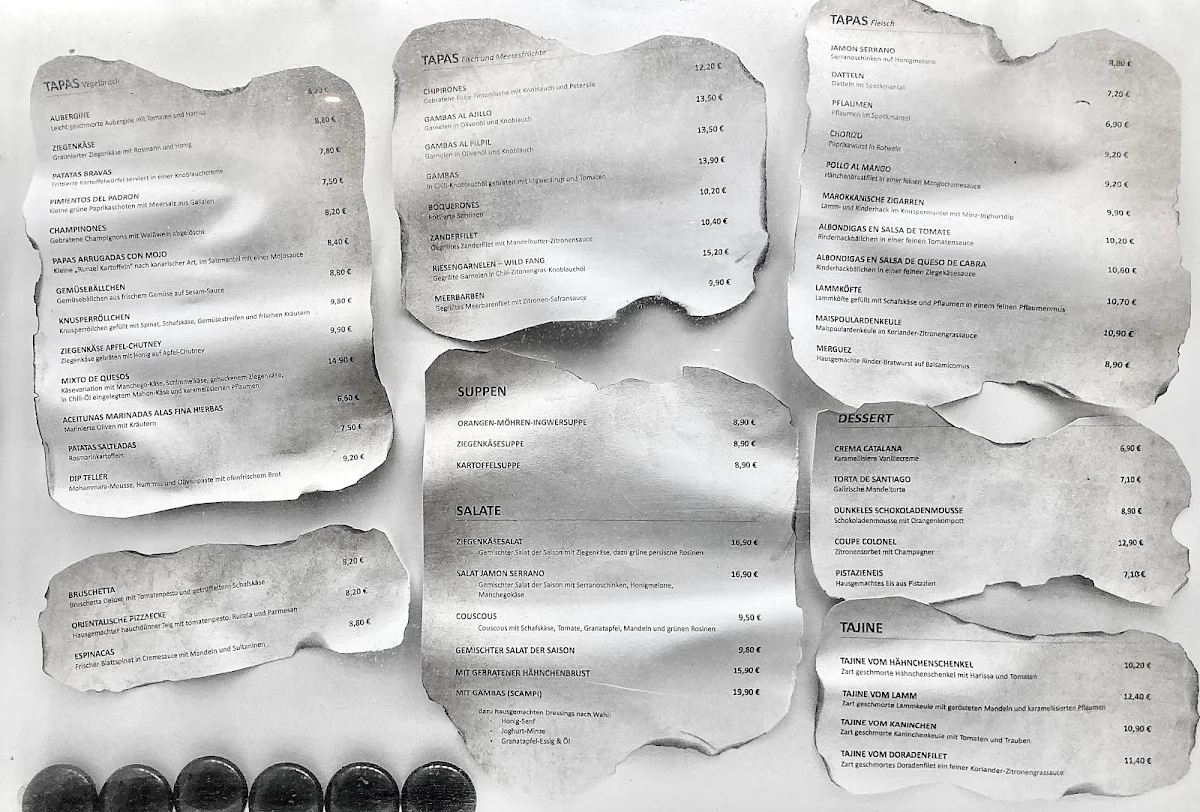 TAPAS Vegetarisch
8,20 €
AUBERGINE
Leicht geschmorte Aubergine mit Tomaten und Harissa
8,80 €
ZIEGENKÄSE
Gratinierter Ziegenkäse mit Rosmarin und Honig
7,80 €
PATATAS BRAVAS
Frittierte Kartoffelwürfel serviert in einer Knoblauchcreme
7,50 €
PIMIENTOS DEL PADRON
Kleine grüne Paprikaschoten mit Meersalz aus Galizien
8,20 €
CHAMPINONES
Gebratene Champignons mit Weißwein abgelöscht
8,40 €
PAPAS ARRUGADAS CON MOJO
Kleine „Runzel Kartoffeln" nach kanarischer Art, im Salzmantel mit einer Mojosauce
8,60 €
GEMÜSEBÄLLCHEN
Gemüsebällchen aus frischem Gemüse auf Sesam-Sauce
9,80 €
KNUSPERRÖLLCHEN
Knusperröllchen gefüllt mit Spinat, Schafskäse, Gemüsestreifen und frischen Kräutern
9,90 €
ZIEGENKÄSE APFEL-CHUTNEY
Ziegenkäse gebraten mit Honig auf Apfel-Chutney
14,90 €
MIXTO DE QUESOS
Käsevariation mit Manchego-Käse, Schimmelkäse, gebackenem Ziegenkäse,
in Chili-Öl eingelegtem Mahon-Käse und karamellisierten Pflaumen
6,60 €
ACEITUNAS MARINADAS ALAS FINA HIERBAS
Marinierte Oliven mit Kräutern
7,50 €
PATATAS SALTEADAS
Rosmarinkartoffeln
9,20 €
DIP TELLER
Mohammara-Mousse, Hummus und Olivenpaste mit ofenfrischem Brot
8,20 €
BRUSCHETTA
Bruschetta Deluxe mit Tomatenpesto und getrüffeltem Schafskäse
8,20 €
ORIENTALISCHE PIZZAECKE
Hausgemachter hauchdünner Teig mit tomatenpesto, Rucola und Parmesan
8,80 €
ESPINACAS
Frischer Blattspinat in Cremesauce mit Mandeln und Sultaninen
TAPAS Fisch und Meeresfrüchte
12,20 €
CHIPIRONES
Gebratene Baby-Tintenfische mit Knoblauch und Petersilie
13,50 €
GAMBAS AL AJILLO
Garnelen in Olivenöl und Knoblauch
13,50 €
GAMBAS AL PILPIL
Garnelen in Olivenöl und Knoblauch
13,90 €
GAMBAS
in Chili-Knoblauchöl gebraten mit Ingwersirup und Tomaten
10,20 €
BOQUERONES
Frittierte Sardinen
10,40 €
ZANDERFILET
Gegrilltes Zanderfilet mit Mandelbutter-Zitronensauce
15,20 €
RIESENGARNELEN – WILD FANG
Gegrillte Garnelen in Chili-Zitonengras-Knoblauchöl
9,90 €
MEERBARBEN
Gegrilltes Meerbarbenfilet mit Zitronen-Safransauce
SUPPEN
ORANGEN-MÖHREN-INGWERSUPPE 8,90 €
ZIEGENKÄSESUPPE 8,90 €
KARTOFFELSUPPE 8,90 €
SALATE
ZIEGENKÄSESALAT 16,90 €
Gemischter Salat der Saison mit Ziegenkäse, dazu grüne persische Rosinen
SALAT JAMON SERRANO 16,90 €
Gemischter Salat der Saison mit Serranoschinken, Honigmelone,
Manchegokäse
COUSCOUS 9,50 €
Couscous mit Schafskäse, Tomate, Granatapfel, Mandeln und grünen Rosinen
GEMISCHTER SALAT DER SAISON 9,80 €
MIT GEBRATENER HÄHNCHENBRUST 15,90 €
MIT GAMBAS (SCAMPI) 19,90 €
dazu hausgemachten Dressings nach Wahl:
• Honig-Senf
• Joghurt-Minze
• Granatapfel-Essig & Öl
TAPAS Fleisch
JAMON SERRANO 8,80 €
Serranoschinken auf Honigmelone
DATTELN 7,20 €
Datteln im Speckmantel
PFLAUMEN 6,90 €
Pflaumen im Speckmantel
CHORIZO 9,20 €
Paprikawurst in Rotwein
POLLO AL MANGO 9,20 €
Hänchenbrustfilet in einer feinen Mangocremesauce
MAROKKANISCHE ZIGARREN 9,90 €
Lamm- und Rinderhack im Knuspermantel mit Minz-Joghurtdip
ALBONDIGAS EN SALSA DE TOMATE 10,20 €
Rinderhackbällchen in einer feinen Tomatensauce
ALBONDIGAS EN SALSA DE QUESO DE CABRA 10,60 €
Rinderhackbällchen in einer feinen Ziegekäsesauce
LAMMKÖFTE 10,70 €
Lammköfte gefüllt mit Schafskäse und Pflaumen in einem feinen Pflaumenmus
MAISPOULARDENKEULE 10,90 €
Maispoulardenkeule an Koriander-Zitronengrassauce
MERGUEZ 8,90 €
Hausgemachte Rinder-Bratwurst auf Balsamicomus
DESSERT
CREMA CATALANA 6,90 €
Karamellisiere Vanillecreme
TORTA DE SANTIAGO 7,10 €
Galizische Mandeltorte
DUNKELES SCHOKOLADENMOUSSE 8,90 €
Schokoladenmousse mit Orangenkompott
COUPE COLONEL 12,90 €
Zitronensorbet mit Champagner
PISTAZIENEIS 7,10 €
Hausgemachtes Eis aus Pistazien
TAJINE
TAJINE VOM HÄHNCHENSCHENKEL 10,20 €
Zart geschmorte Hähnchenschenkel mit Harissa und Tomaten
TAJINE VOM LAMM 12,40 €
Zart geschmorte Lammkeule mit gerösteten Mandeln und karamellisierten Pflaumen
TAJINE VOM KANINCHEN 10,90 €
Zart geschmorte Kaninchenkeule mit Tomaten und Trauben
TAJINE VOM DORADENFILET 11,40 €
Zart geschmortes Doradenfilet ein feiner Koriander-Zitronengrassauce